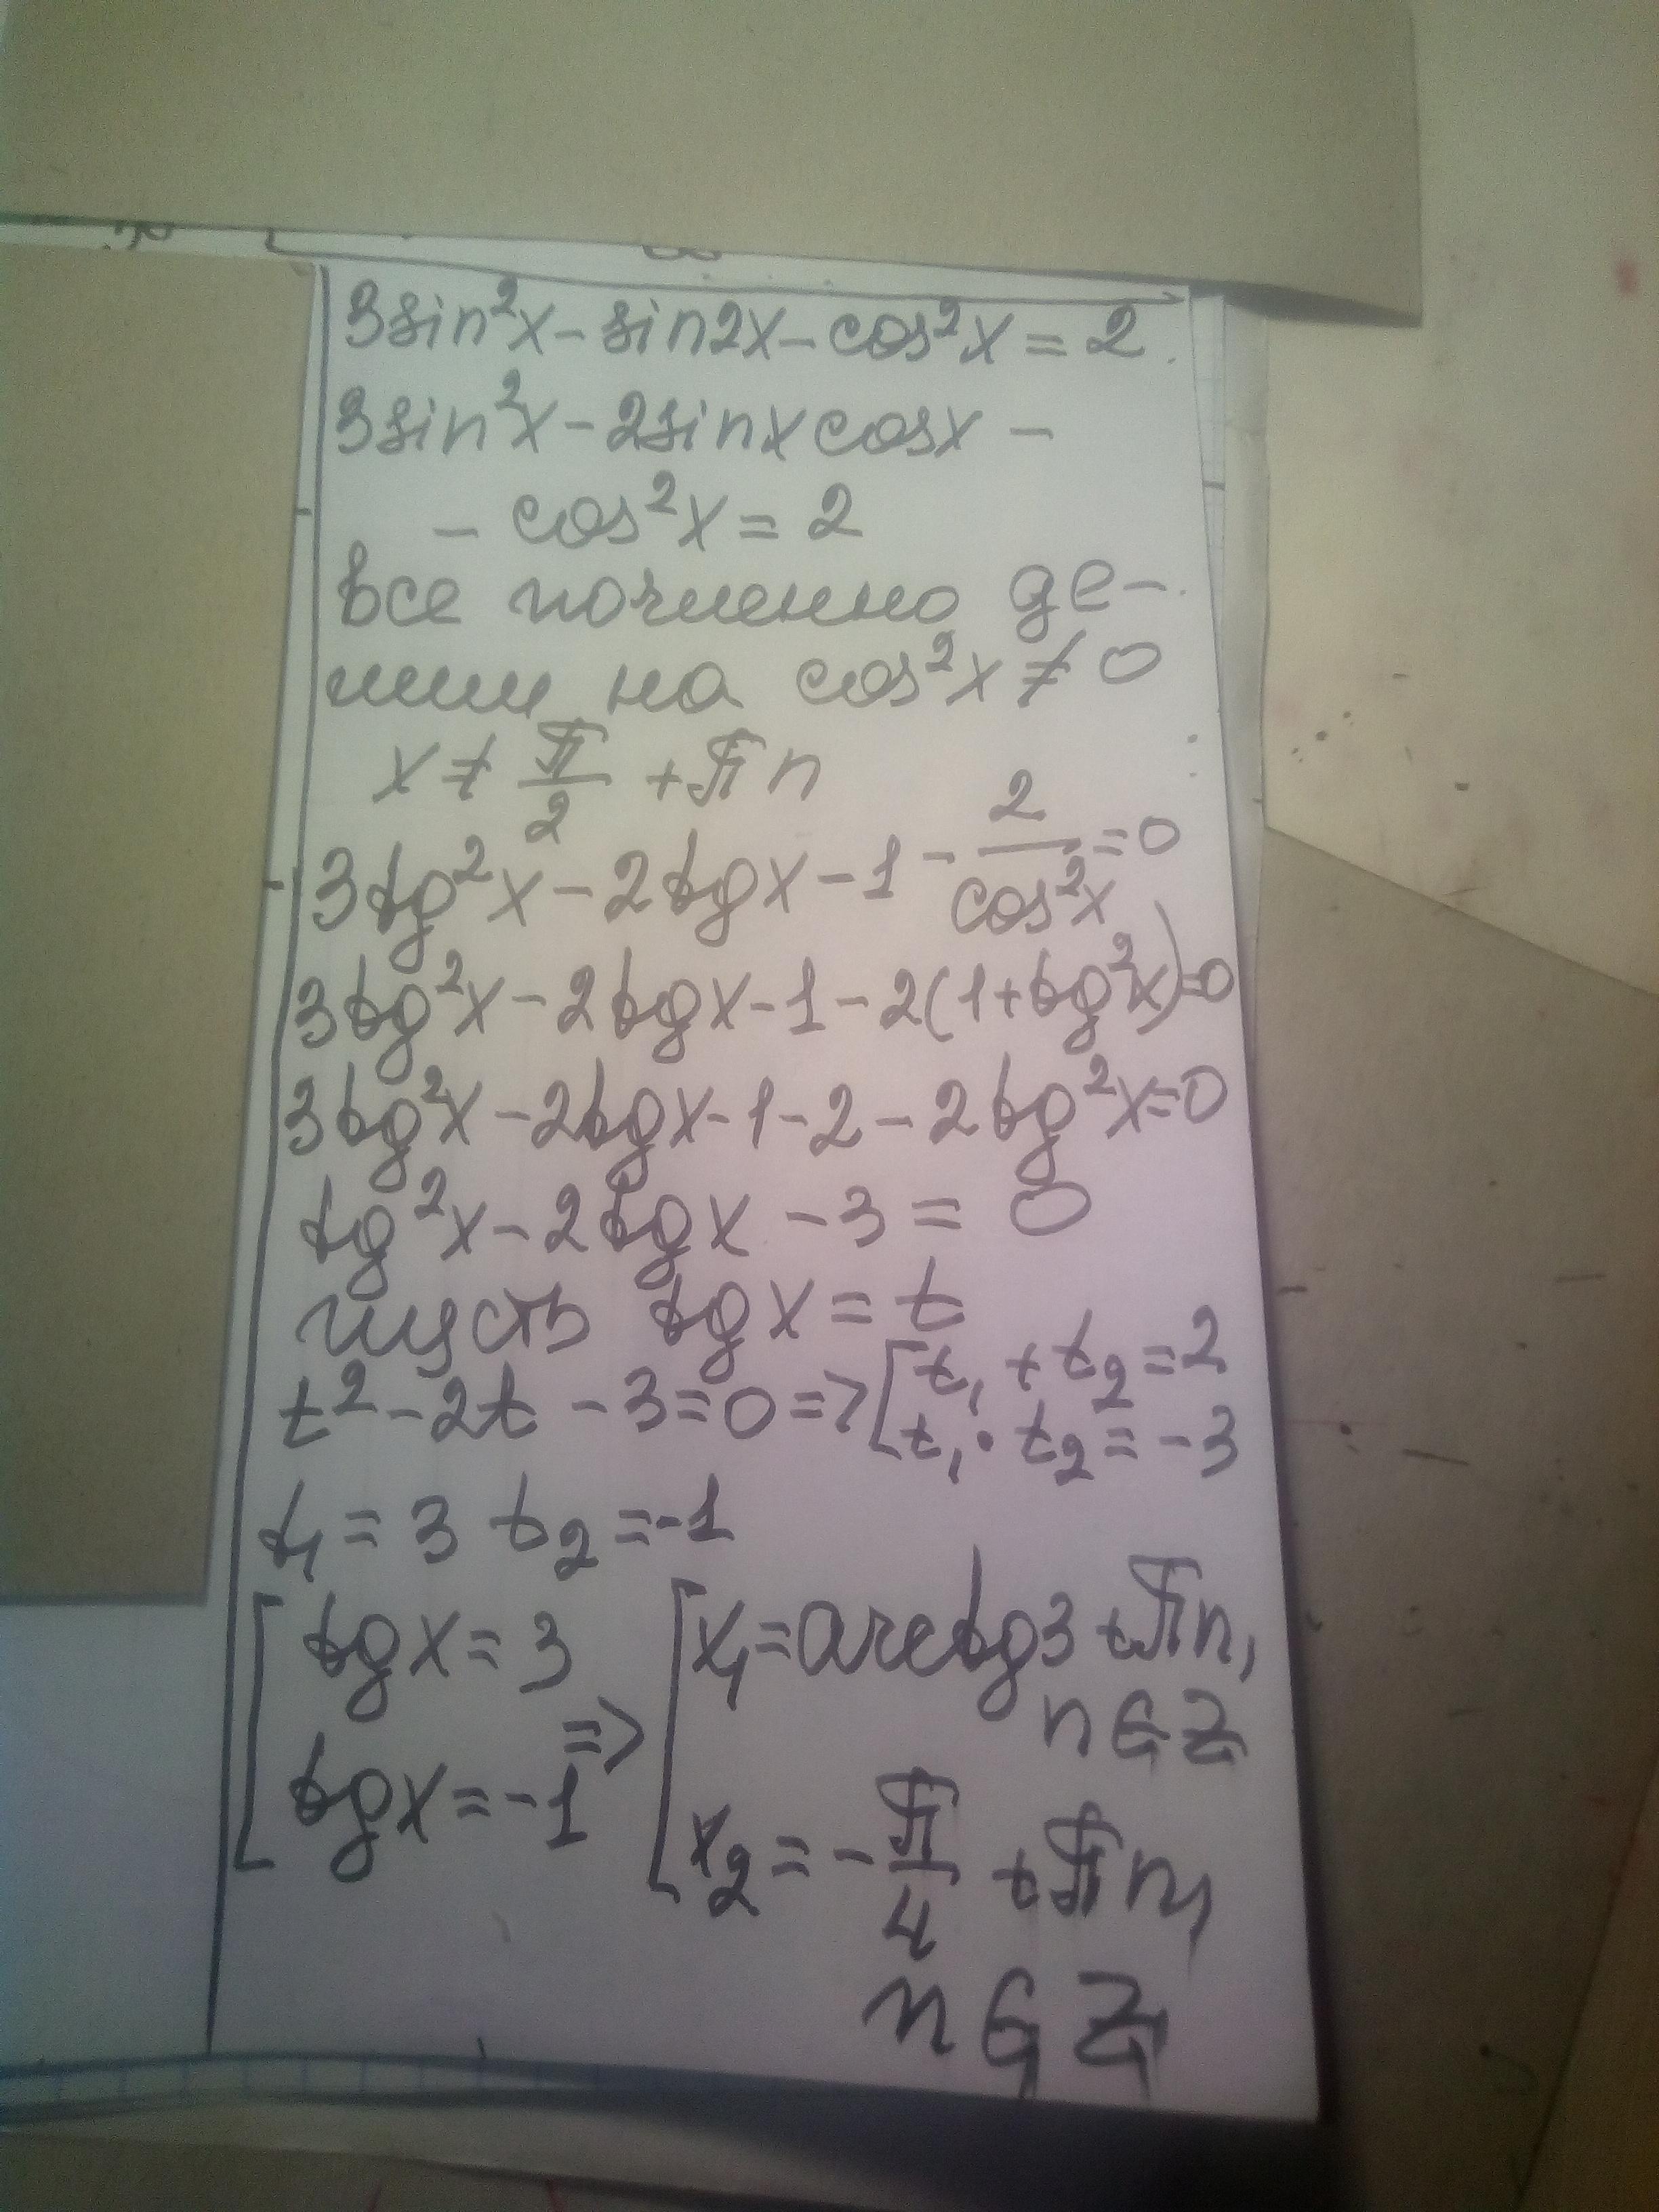 3sin²x - sin2x - cos²x = 2
3sin²x - 2sinxcosx -
- cos²x = 2
все почленно де-
лим на cos²x ≠ 0
x ≠ π/2 + πn
3tg²x - 2tgx - 1 - 2/cos²x = 0
3tg²x - 2tgx - 1 - 2(1 + tg²x) = 0
3tg²x - 2tgx - 1 - 2 - 2tg²x = 0
tg²x - 2tgx - 3 = 0
пусть tgx = t
t² - 2t - 3 = 0 => [t₁ + t₂ = 2
t₁ · t₂ = -3
t₁ = 3 t₂ = -1
[tgx = 3
tgx = -1
=> [x₁ = arctg3 + πn,
n ∈ Z
x₂ = -π/4 + πn,
n ∈ Z